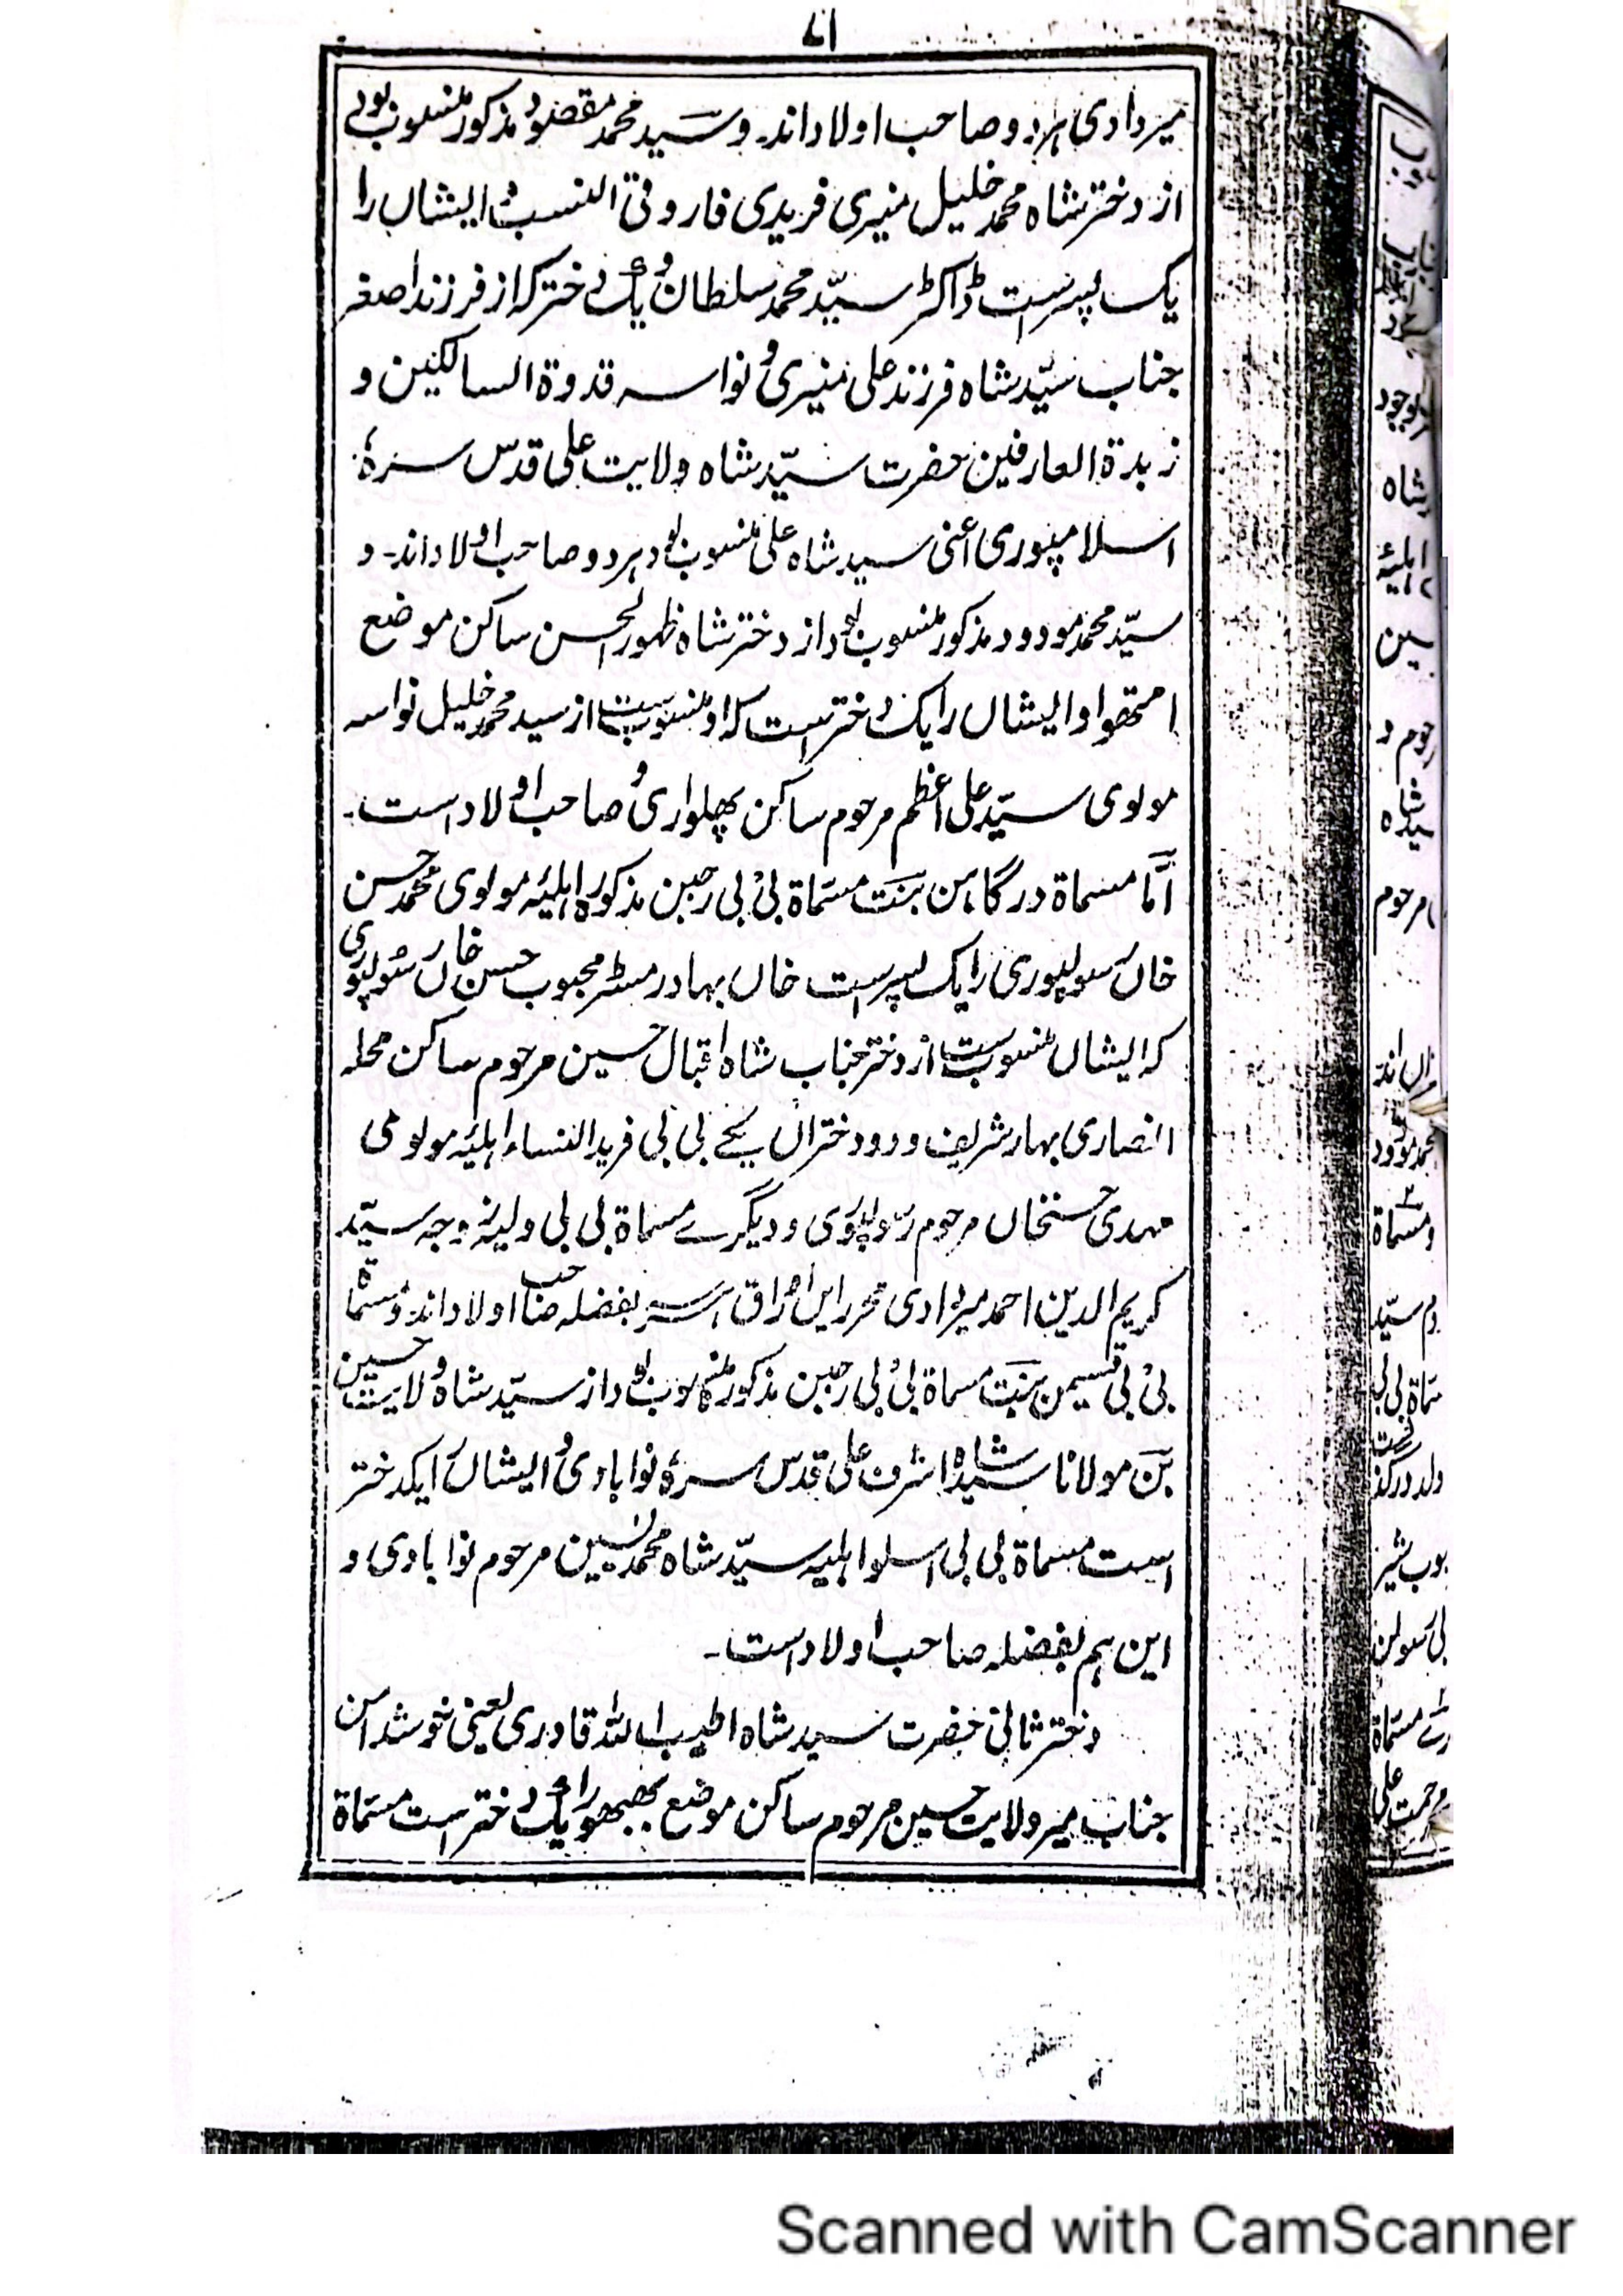 ۷۱
میردادی ہردو صاحب اولاد اند۔ و سید محمد مقصود مذکور منسوب بودے
از دختر شاہ محمد خلیل منیری فریدی فاروقی النسب و ایشاں را
یک پسر ست ڈاکٹر سید محمد سلطان و یک دختر کہ از فرزند اصغر
جناب سید شاہ فرزند علی منیری و نواسہ قدوۃ السالکین و
زبدۃ العارفین حضرت سید شاہ ولایت علی قدس سرہٗ
اسلامپوری اعنی سید شاہ علی منسوب بود ہردو صاحب اولاد اند۔ و
سید محمد مودود مذکور منسوب بود از دختر شاہ ظہور الحسن ساکن موضع
امتھوا و ایشاں را یک دختر است کہ او منسوب ست از سید محمد خلیل نواسہ
مولوی سید علی اعظم مرحوم ساکن پھلواری و صاحب اولاد است۔
اما مسماۃ درگاہن بنت مسماۃ بی بی رجبن مذکورہ اہلیہ مولوی محمد حسن
خاں سولپوری را یک پسر است خاں بہادر مسٹر محبوب حسن خاں سولپوری
کہ ایشاں منسوب ست از دختر جناب شاہ اقبال حسین مرحوم ساکن محلہ
انصاری بہار شریف و دو دختراں یکے بی بی فرید النساء اہلیہ مولوی
مہدی حسنخاں مرحوم و دیگرے مسماۃ بی بی ولیہ زوجہ سید
کریم الدین احمد میردادی محرر ایں اوراق بفضلہ صاحب اولاد اند۔ و مسماۃ
بی بی قسیمن بنت مسماۃ بی بی رجبن مذکور منسوب بود از سید شاہ ولایت حسین
بن مولانا سید شاہ اشرف علی قدس سرہٗ نوابادی و ایشاں را یکدختر
است مسماۃ بی بی اسلو اہلیہ سید شاہ محمد یسین مرحوم نوابادی و
این ہم بفضلہ صاحب اولاد است۔
دختر ثانی حضرت سید شاہ اطیب اللہ قادری یعنی خوشدامن
جناب میر ولایت حسین مرحوم ساکن موضع را یک دختر است مسماۃ
موجود
شاہ
اہلیہ
سین
سید شاہ
مرحوم
محمد مودود
و مسماۃ
سید
Scanned with CamScanner